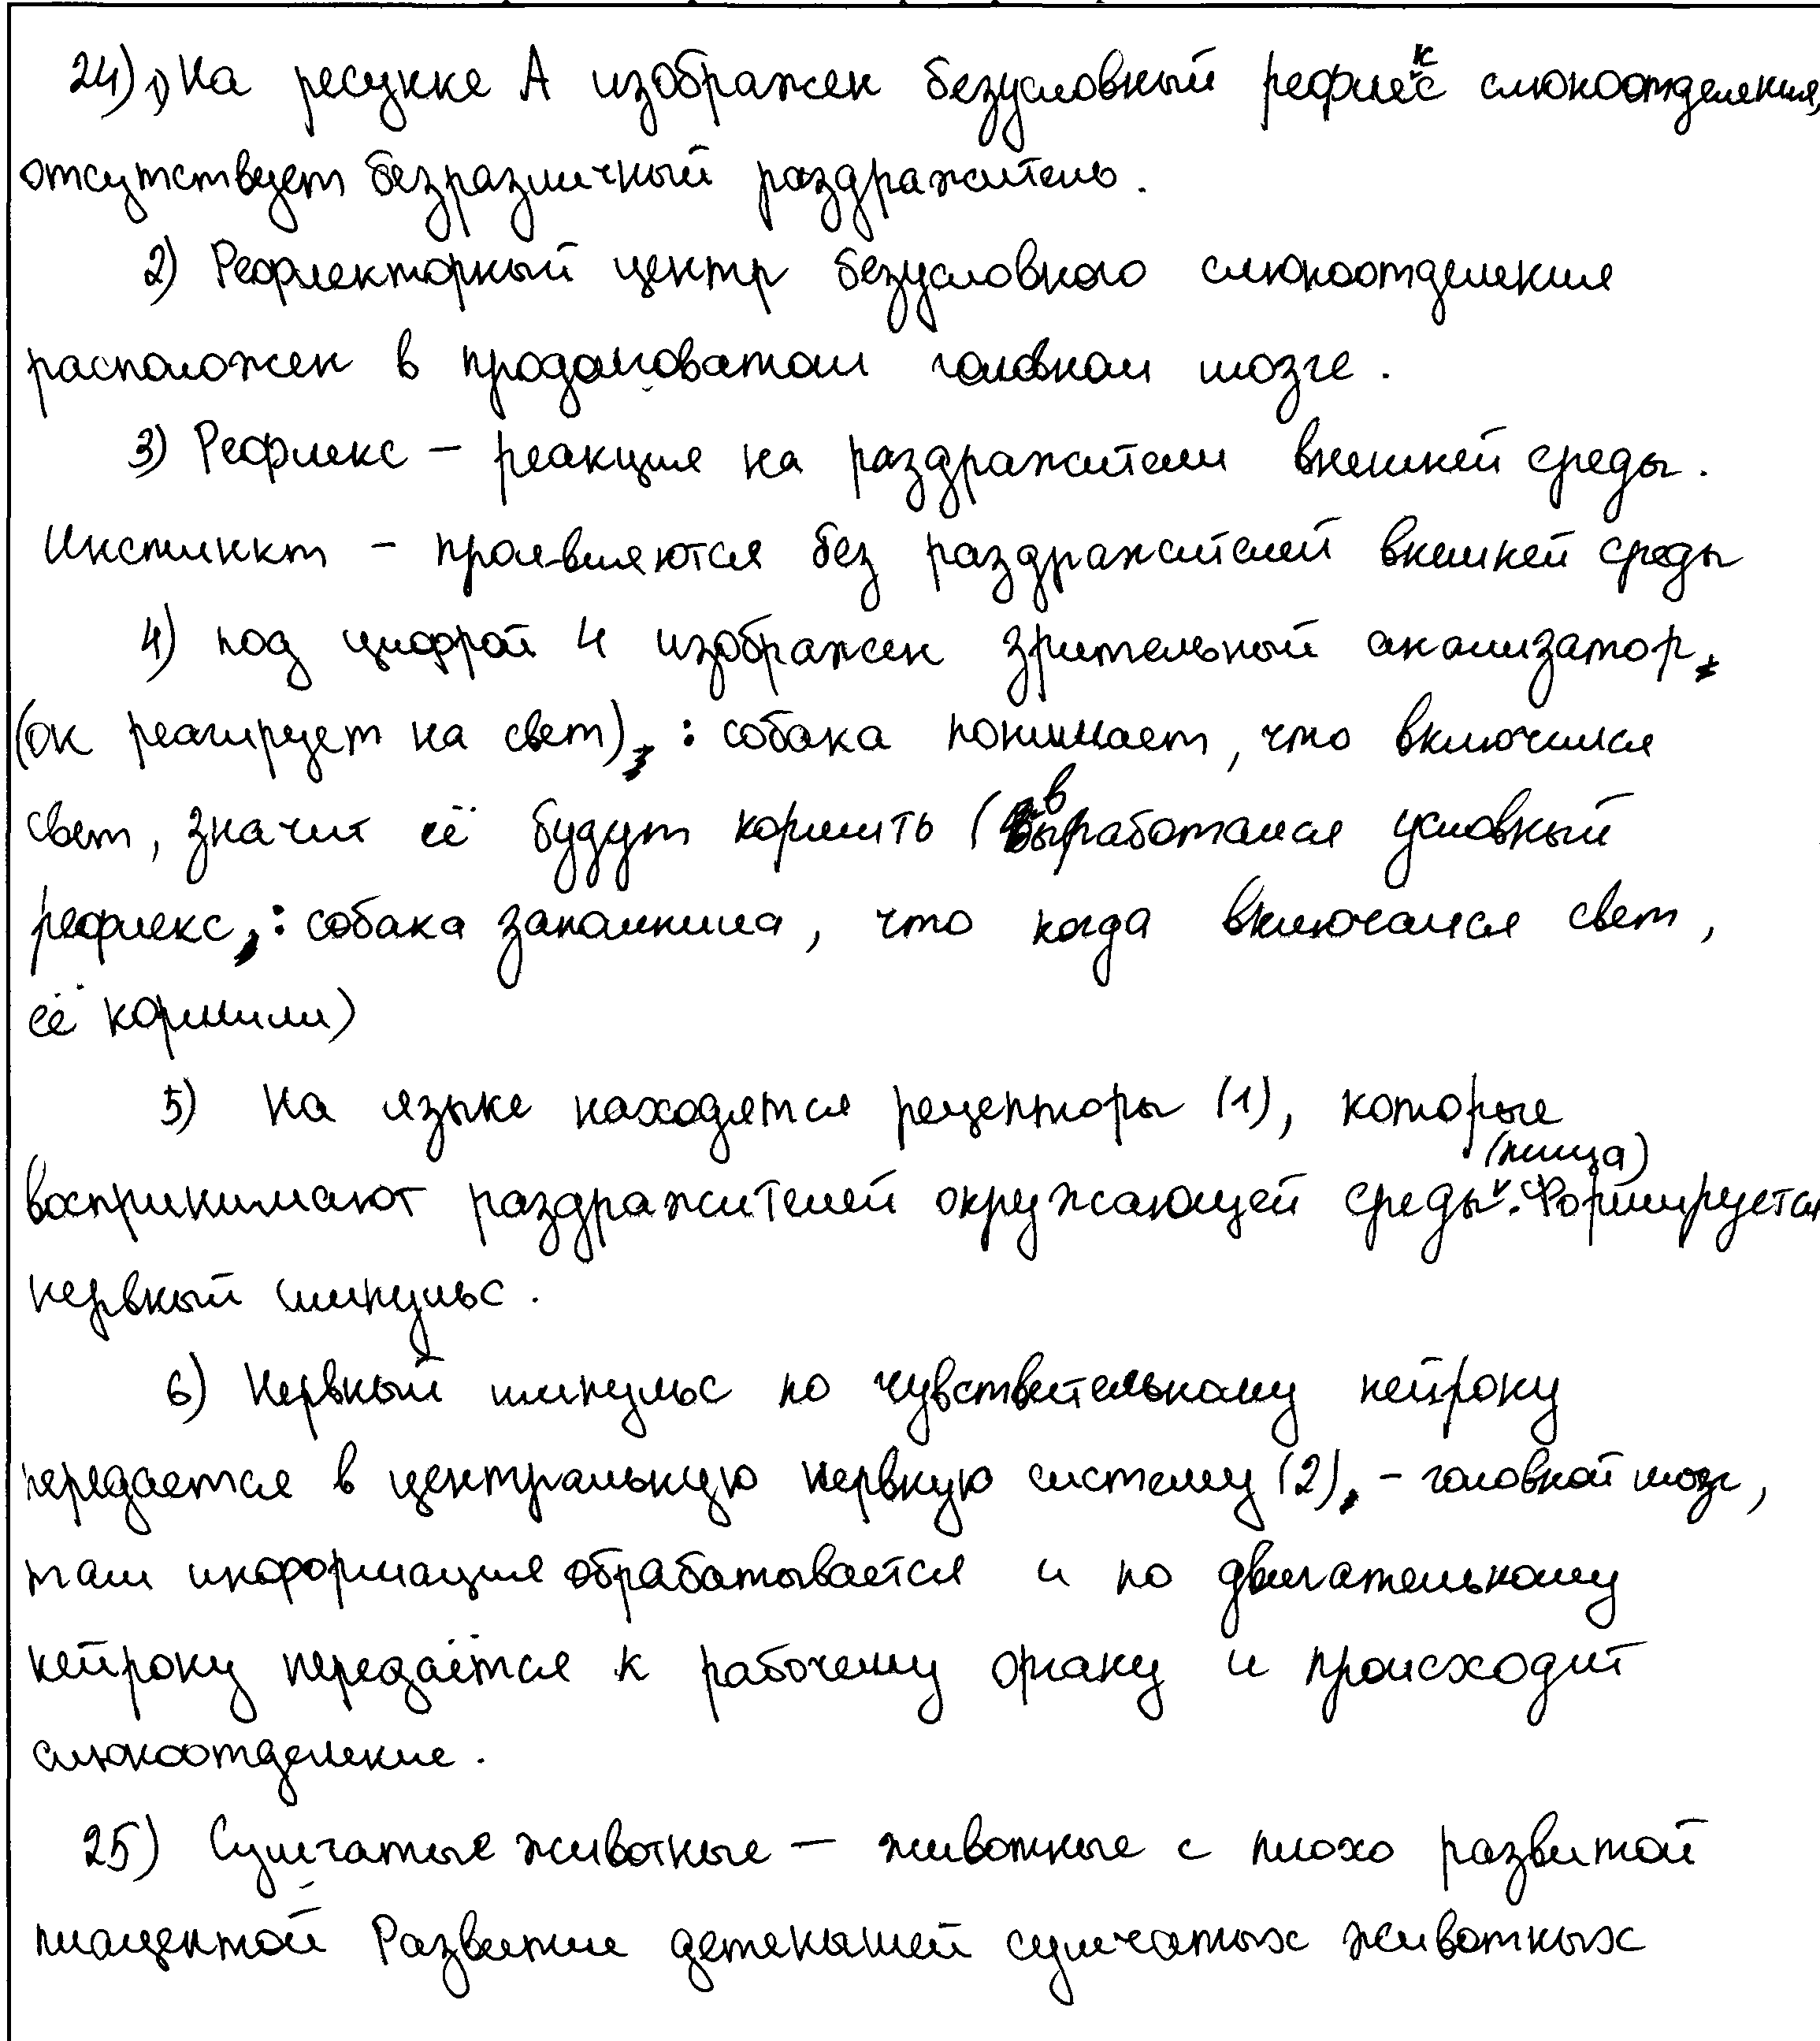 24) 1) На ресунке А изображен безусловный рефлекс слюноотделения,
отсутствует безразличный раздражитель.
2) Рефлекторный центр безусловного слюноотделения
расположен в продолговатом головном мозге.
3) Рефлекс – реакция на раздражители внешней среды.
Инстинкт – проявляются без раздражителей внешней среды
4) под цифрой 4 изображен зрительный анализатор
(он реагирует на свет) : собака понимает, что включился
свет, значит её будут кормить (выработался условный
рефлекс : собака запомнила, что когда включался свет,
её кормили)
5) На языке находятся рецепторы (1), которые
воспринимают раздражителей окружающей среды (пища). Формируется
нервный импульс.
6) Нервный импульс по чувствительному нейрону
передается в центральную нервную систему (2) – головной мозг,
там информация обрабатывается и по двигательному
нейрону передаётся к рабочему органу и происходит
слюноотделение.
25) Сумчатые животные – животные с плохо развитой
плацентой Развитие детенышей сумчатых животных